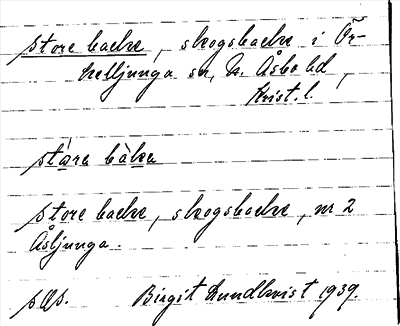 store backe, skogsbacke i Ör-
kelljunga sn, N. Åsbo hd,
Krist. l.
stára bàka
store backe, skogsbacke, nr 2
Åsljunga.
Birgit Lundkvist 1939.